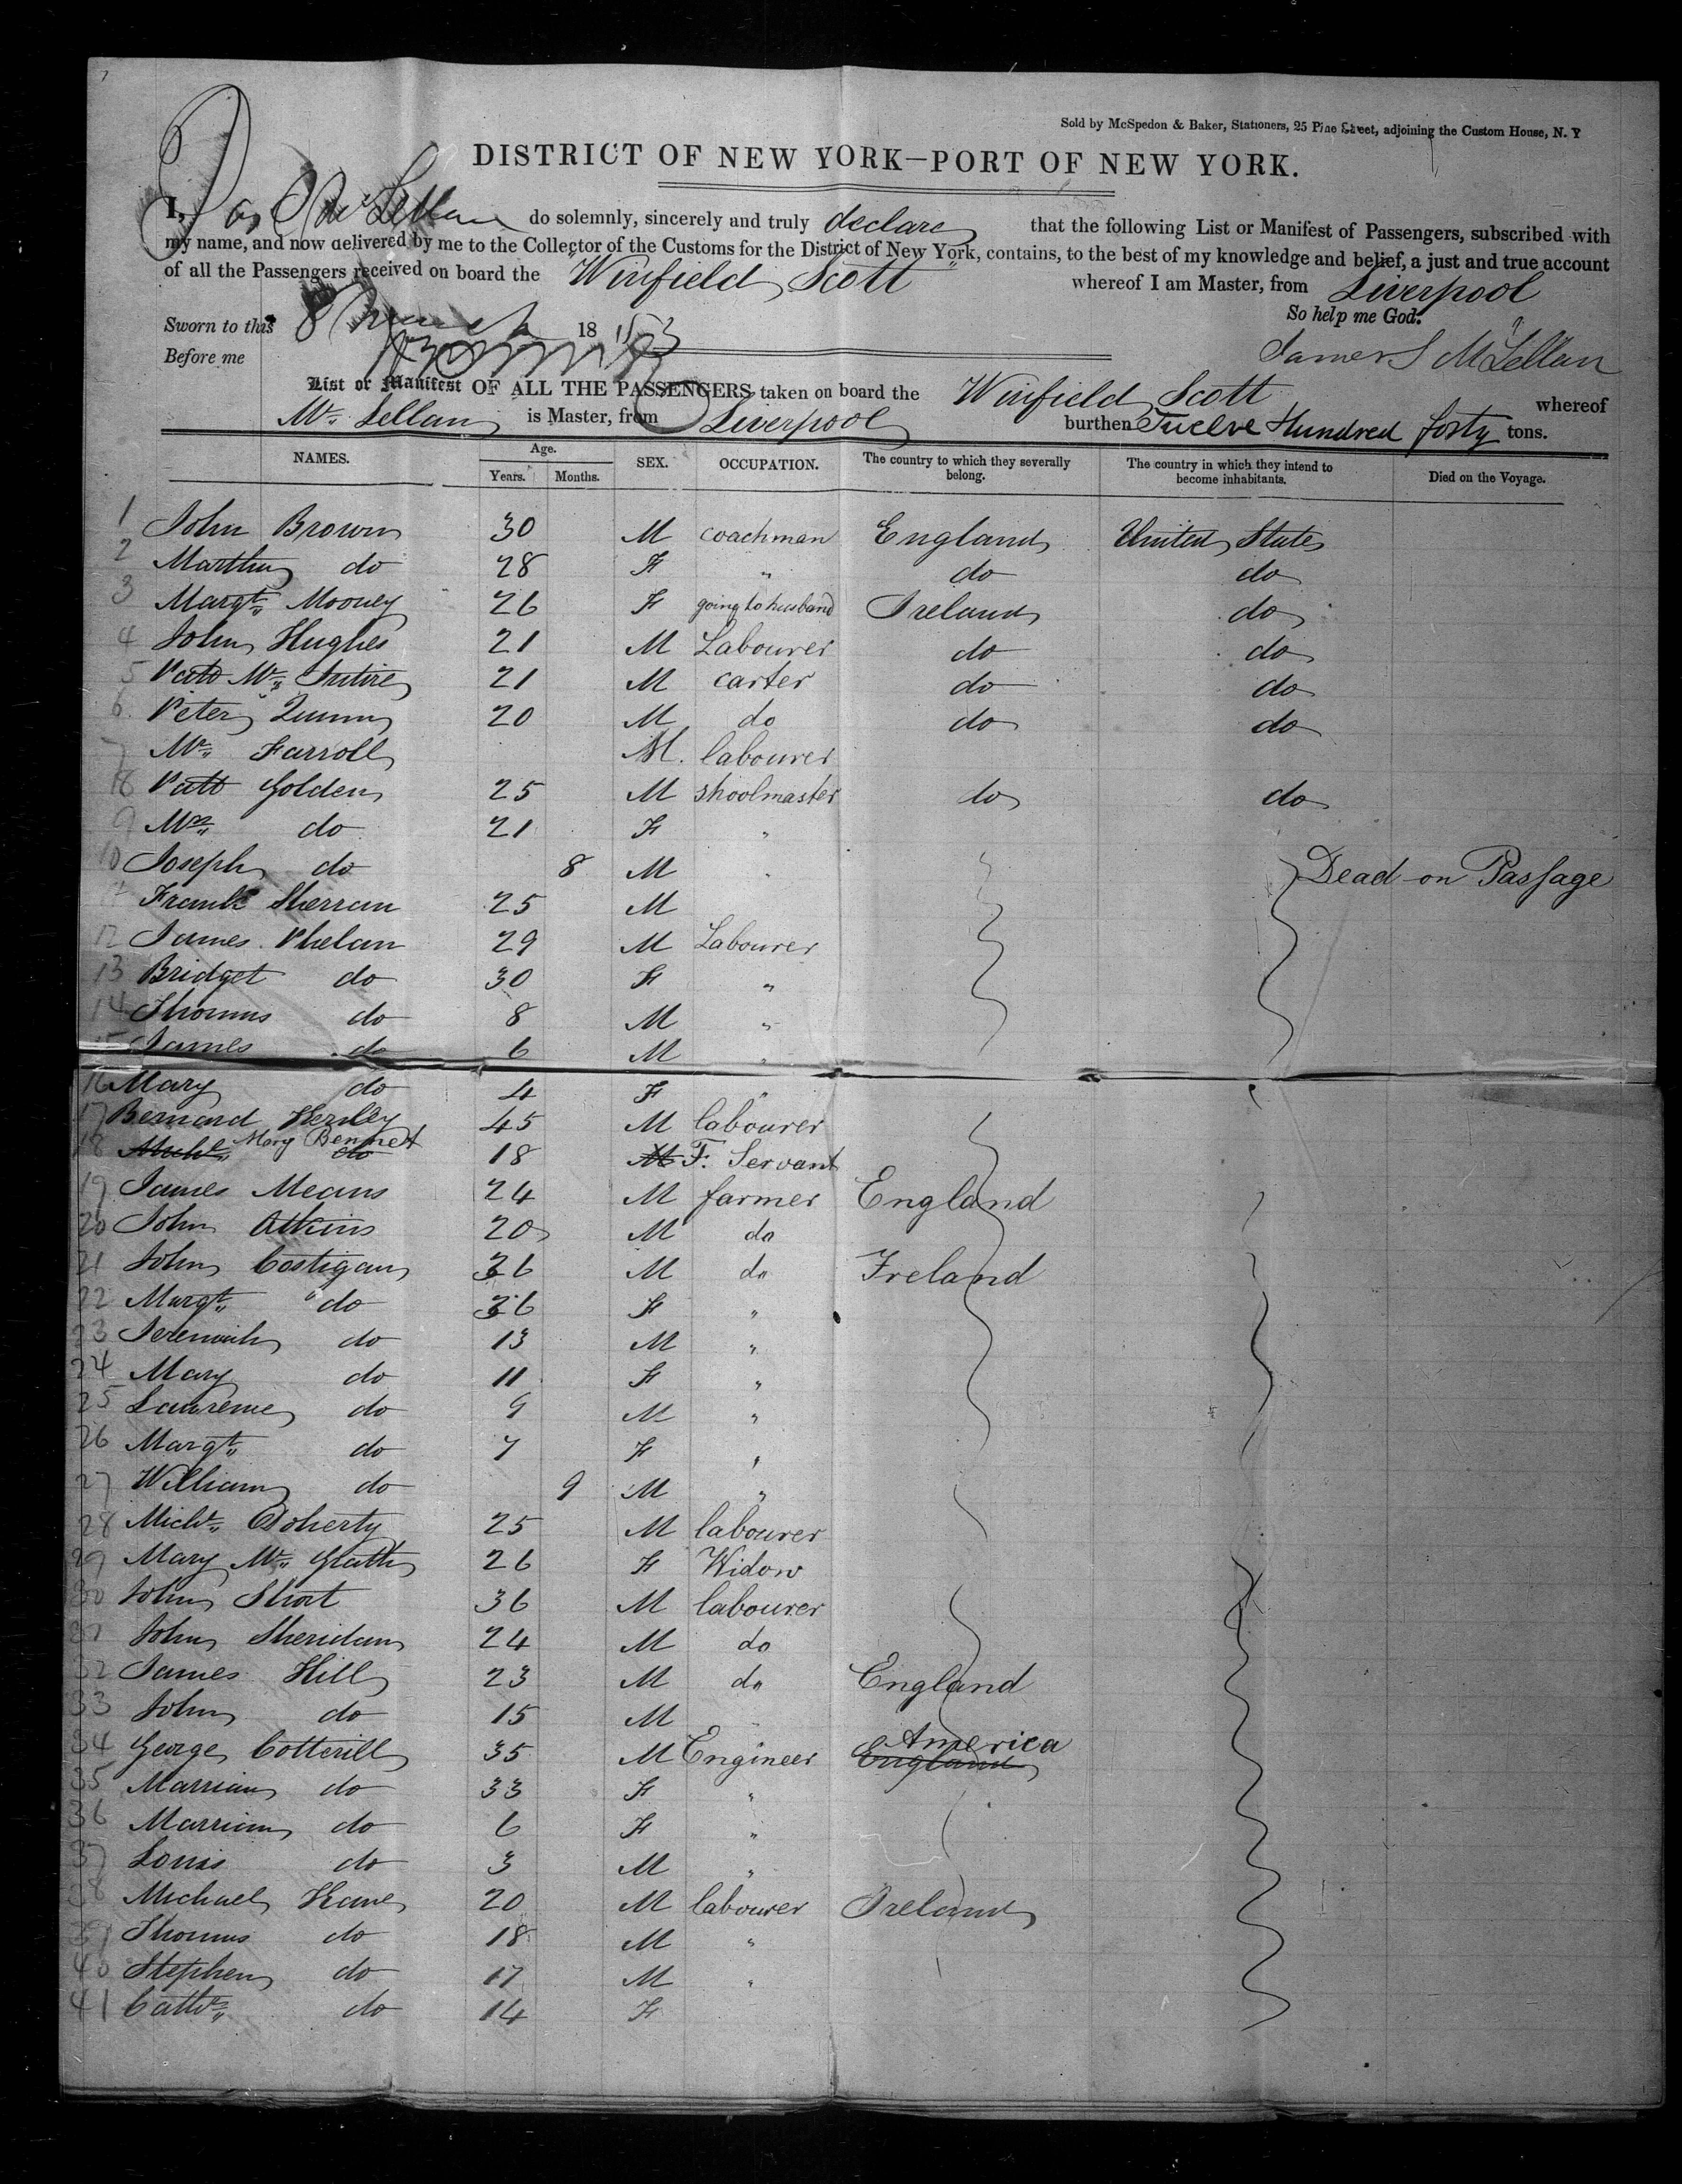 Sold by McSpedon & Baker, Stationers, 25 Pine Street, adjoining the Custom House, N. Y
DISTRICT OF NEW YORK—PORT OF NEW YORK.
I, Jas S Mc Lellan do solemnly, sincerely and truly declare that the following List or Manifest of Passengers, subscribed with
my name, and now delivered by me to the Collector of the Customs for the District of New York, contains, to the best of my knowledge and belief, a just and true account
of all the Passengers received on board the "Winfield Scott" whereof I am Master, from Liverpool
So help me God.
Sworn to this 8 March 1853
James S McLellan
Before me
List or Manifest OF ALL THE PASSENGERS taken on board the Winfield Scott whereof
Mc Lellan is Master, from Liverpool burthen Twelve Hundred forty tons.
NAMES. Age. Years. Months. SEX. OCCUPATION. The country to which they severally belong. The country in which they intend to become inhabitants. Died on the Voyage.
1 John Brown 30 M coachman England United States
2 Martha do 28 F " do do
3 Margt Mooney 26 F going to husband Ireland do
4 John Hughes 21 M Labourer do do
5 Patt Mc Intire 21 M carter do do
6 Peter Quinn 20 M do do do
7 Mc Farroll M. labourer
8 Patt Golden 25 M shoolmaster do do
9 Mrs do 21 F "
10 Joseph do 8 M " Dead on Passage
11 Frank Sherran 25 M
12 James Phelan 29 M Labourer
13 Bridget do 30 F "
14 Thomas do 8 M "
15 James do 6 M "
16 Mary do 4 F "
17 Bernard 45 M labourer
18 Michl do Mary Bennet 18 M F. Servant
19 James Means 24 M farmer England
20 John Atkins 20 M do
21 John Costigan 36 M do Ireland
22 Margt " do 36 F "
23 Jeremiah do 13 M "
24 Mary do 11 F "
25 Lawrence do 9 M "
26 Margt do 7 F "
27 William do 9 M "
28 Michl Doherty 25 M labourer
29 Mary Mc Grath 26 F Widow
30 John Short 36 M labourer
31 John Sheridan 24 M do
32 James Hill 23 M do England
33 John do 15 M
34 George Cotterill 35 M Engineer England America
35 Marriam do 33 F "
36 Marriam do 6 F "
37 Louis do 3 M "
38 Michael Kane 20 M labourer Ireland
39 Thomas do 18 M "
40 Stephen do 17 M "
41 Cathe do 14 F